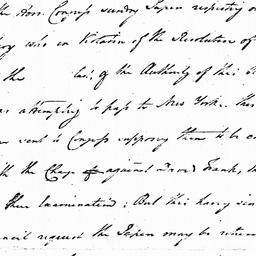 the Hon. Congress sundry Papers respecting
who in Violation of the Resolution of
the of the Authority of this
attempting to pass to New York. This
went to Congress supposing them to be
the Charge against David Franks,
their Examinations; But this having
request the Papers may be return